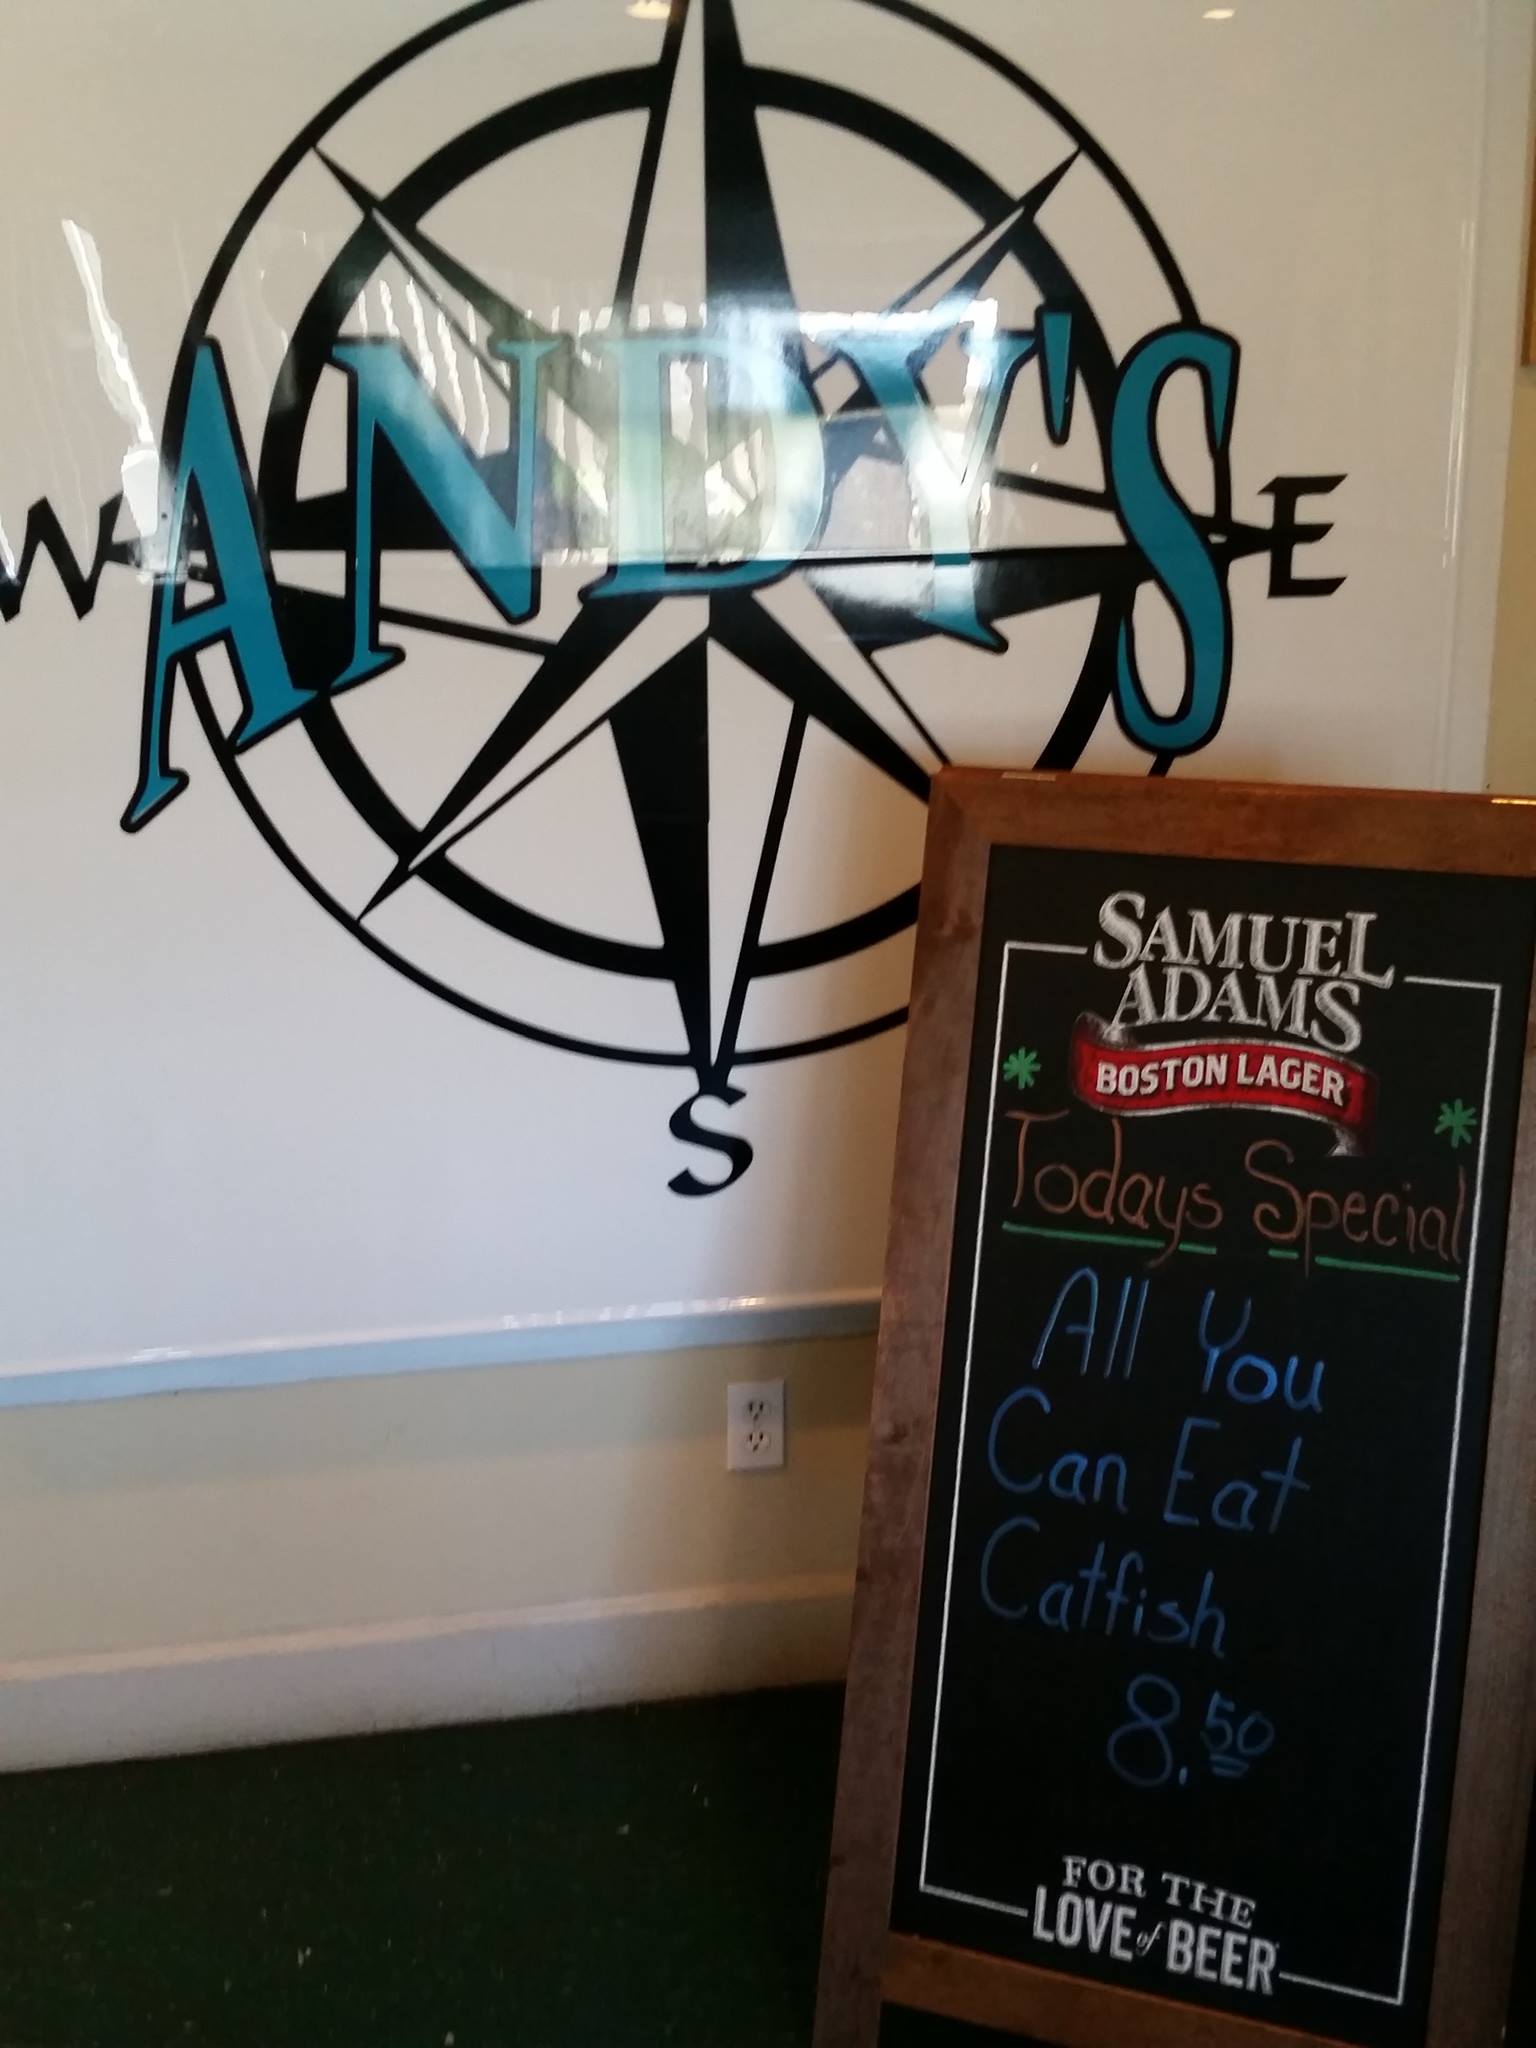 W ANDY'S E
S
SAMUEL
ADAMS
BOSTON LAGER
Todays Special
All You
Can Eat
Catfish
8.50
FOR THE
LOVE of BEER